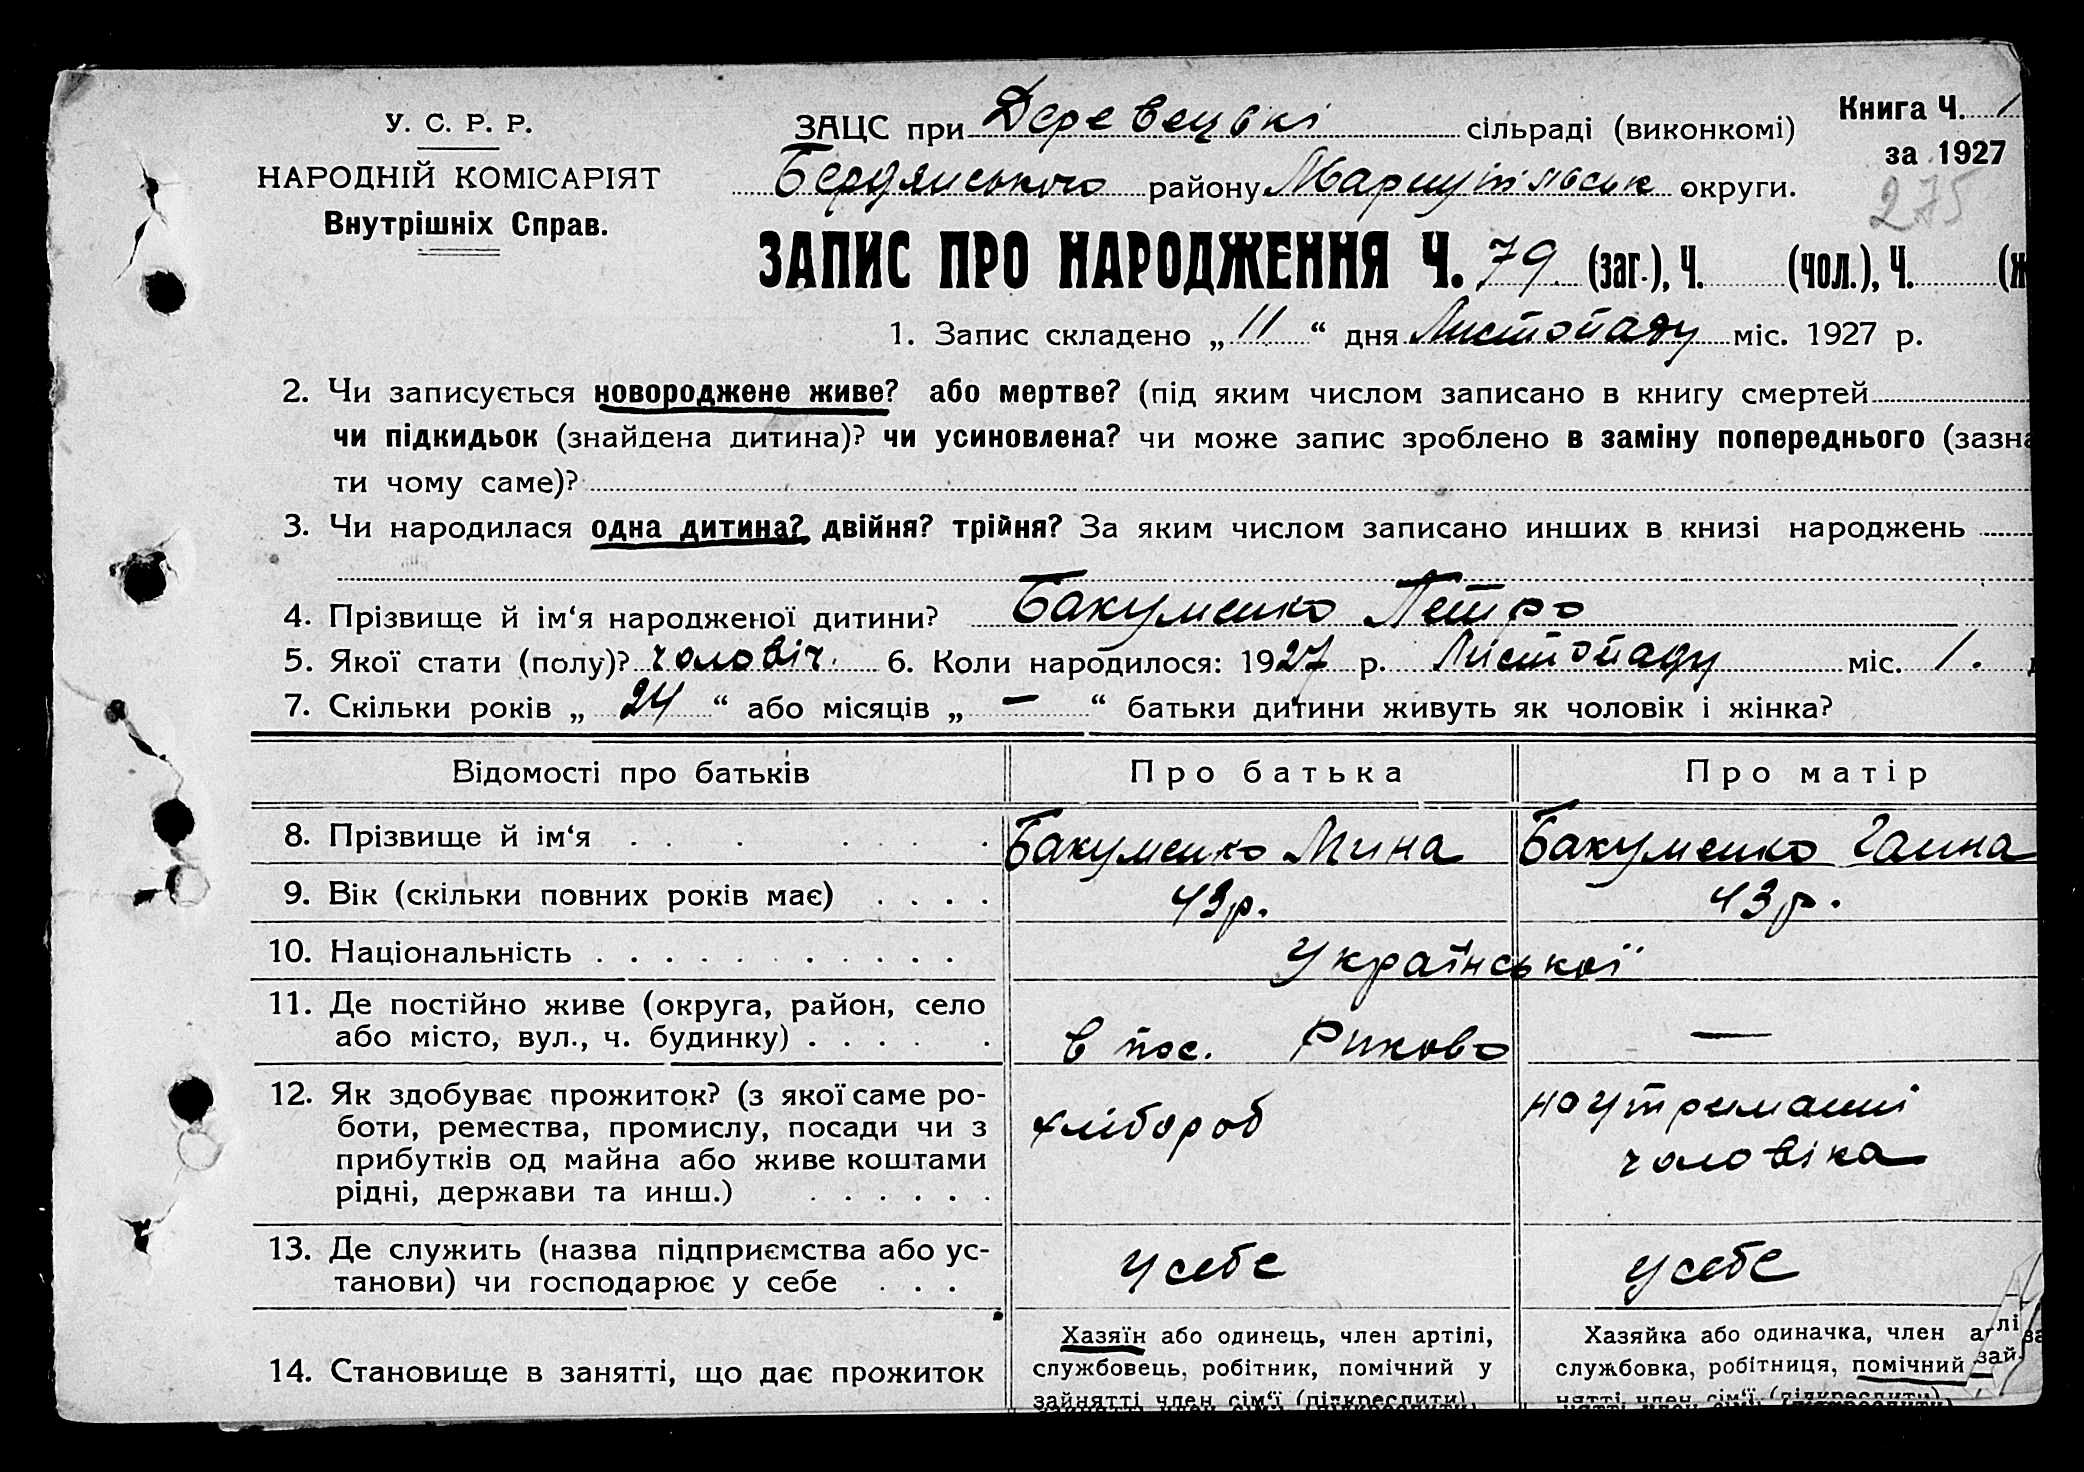 У. С. Р. Р.
НАРОДНІЙ КОМІСАРІЯТ
Внутрішніх Справ.
Книга Ч. 1
за 1927
275
ЗАЦС при Деревецькі сільраді (виконкомі)
Бердянського району Маріуп'льськ округи.
ЗАПИС ПРО НАРОДЖЕННЯ Ч. 79 (заг.), Ч. (чол.), Ч. (ж
1. Запис складено „ 11 “ дня Листопаду міс. 1927 р.
2. Чи записується новороджене живе? або мертве? (під яким числом записано в книгу смертей
чи підкидьок (знайдена дитина)? чи усиновлена? чи може запис зроблено в заміну попереднього (зазна
ти чому саме)?
3. Чи народилася одна дитина? двійня? трійня? За яким числом записано инших в книзі народжень
4. Прізвище й ім‘я народженої дитини? Бакуменко Петро
5. Якої стати (полу)? чоловіч. 6. Коли народилося: 1927 р. Лістопаду міс. 1.
7. Скільки років „ 24 “ або місяців „ — “ батьки дитини живуть як чоловік і жінка?
Відомості про батьків Про батька Про матір
8. Прізвище й ім‘я . . . . . . . Бакуменко Мина Бакуменко Ганна
9. Вік (скільки повних років має) . . . . 43р. 43р.
10. Національність . . . . . . . . . . . Української
11. Де постійно живе (округа, район, село
або місто, вул., ч. будинку) . . . . . в пос. Риково —
12. Як здобуває прожиток? (з якої саме ро-
боти, ремества, промислу, посади чи з
прибутків од майна або живе коштами
рідні, держави та инш.) . . . . . .
хлібороб
на утриманні
чоловіка
13. Де служить (назва підприємства або ус-
танови) чи господарює у себе . . .
у себе у себе
14. Становище в занятті, що дає прожиток
Хазяїн або одинець, член артілі,
службовець, робітник, помічний у
зайнятті член сім‘ї (підкреслити)
Хазяйка або одиначка, член
службовка, робітниця, помічний
нятті член сім‘ї (підкреслити)